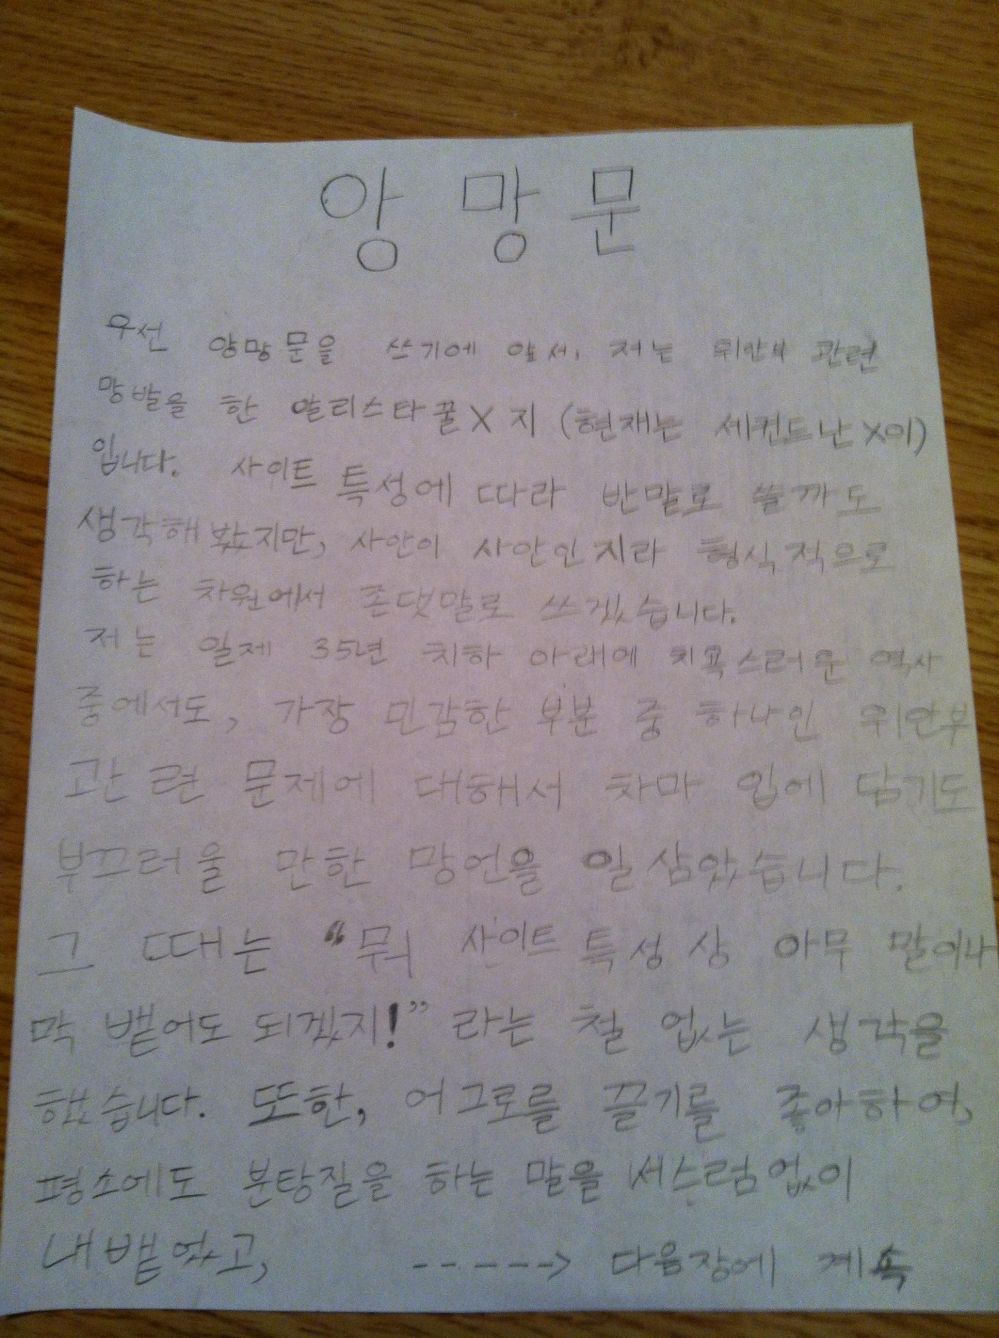 앙망문
우선 앙망문을 쓰기에 앞서, 저는 위안부 관련
망발을 한 알리스타꿀X지 (현재는 세컨드난X이)
입니다. 사이트 특성에 따라 반말로 쓸까도
생각해봤지만, 사안이 사안인지라 형식적으로
하는 차원에서 존댓말로 쓰겠습니다.
저는 일제 35년 치하 아래에 치욕스러운 역사
중에서도, 가장 민감한 부분 중 하나인 위안부
관련 문제에 대해서 차마 입에 담기도
부끄러울 만한 망언을 일삼았습니다.
그 때는 "뭐 사이트 특성상 아무 말이나
막 뱉어도 되겠지!" 라는 철 없는 생각을
했습니다. 또한, 어그로를 끌기를 좋아하여,
평소에도 분탕질을 하는 말을 서스럼없이
내뱉었고, -----> 다음장에 계속